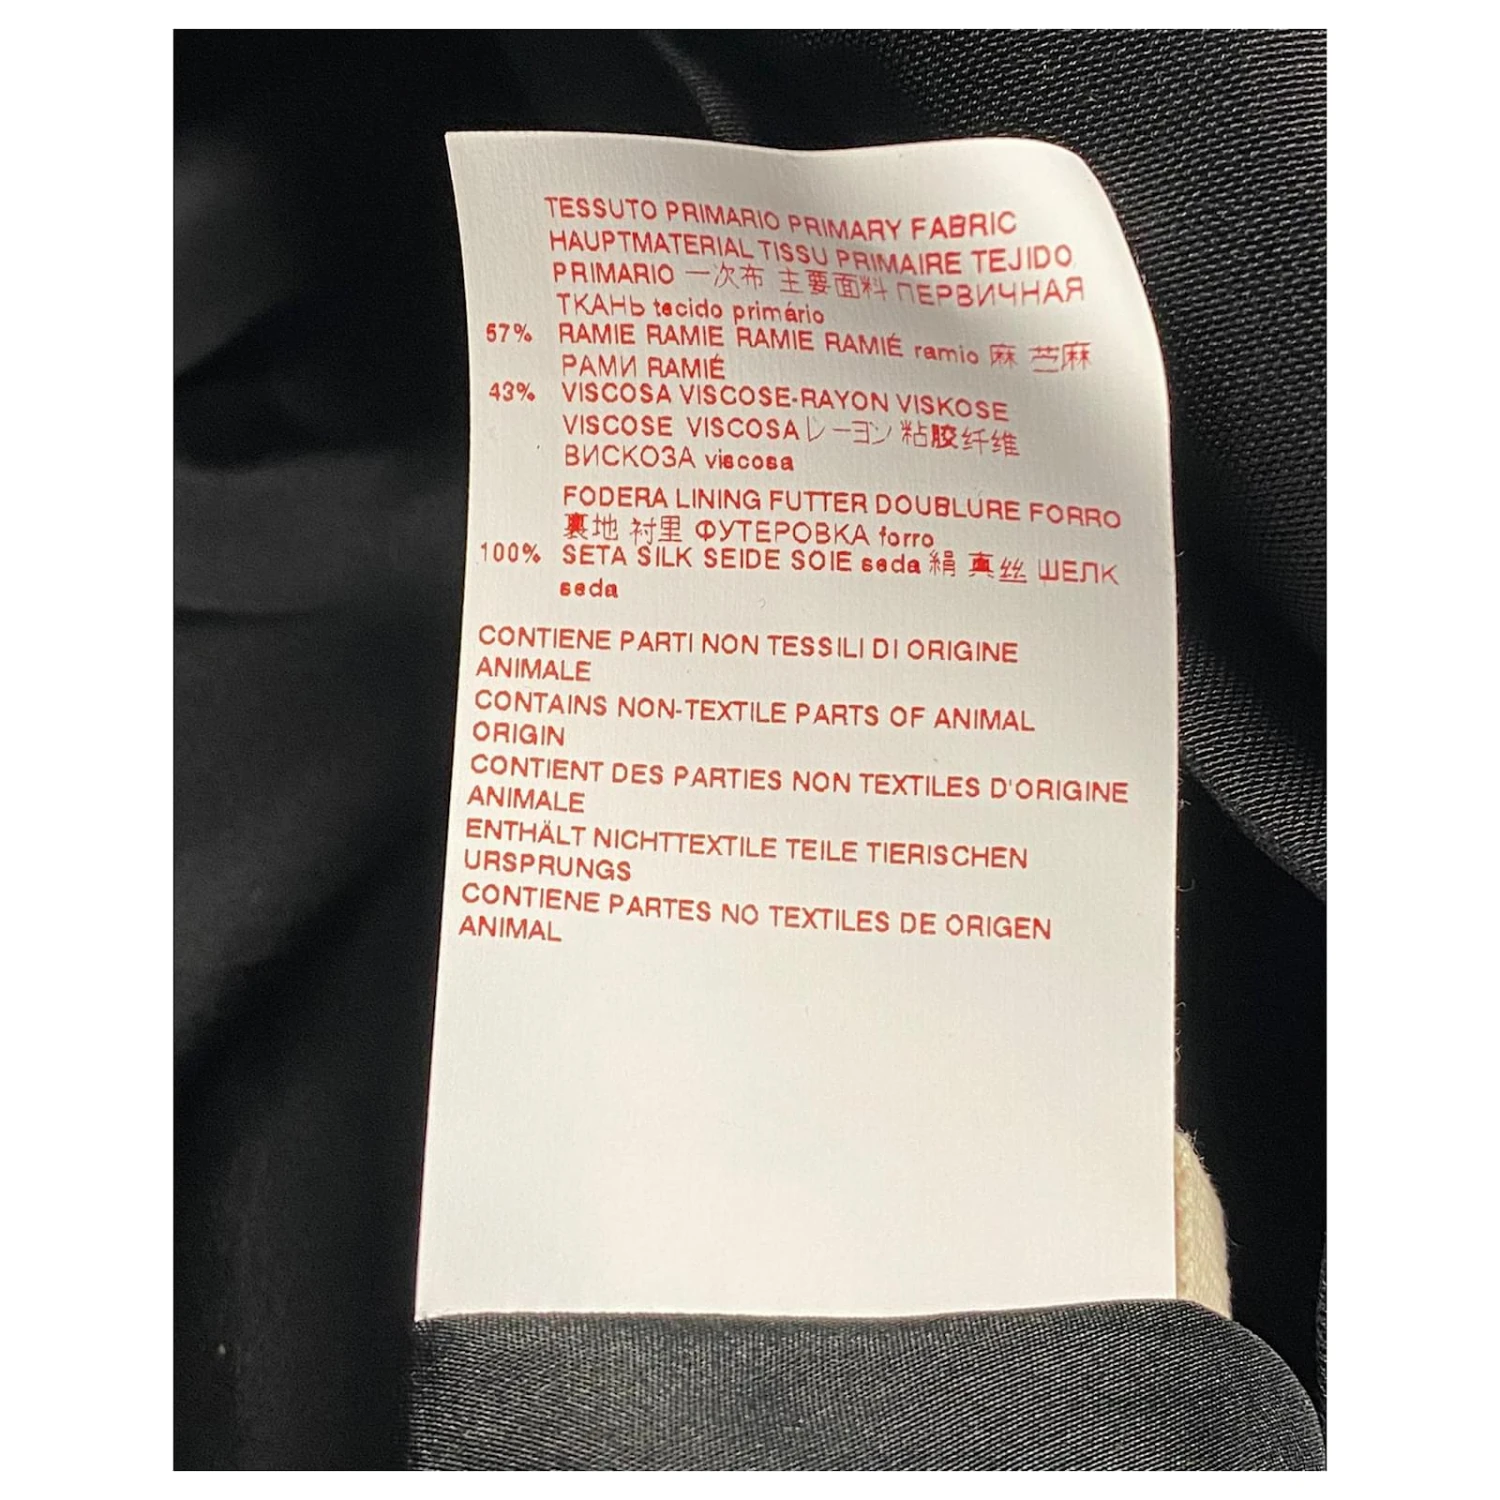 TESSUTO PRIMARIO PRIMARY FABRIC
HAUPTMATERIAL TISSU PRIMAIRE TEJIDO
PRIMARIO 一次布 主要面料 ПЕРВИЧНАЯ
ТКАНЬ tecido primário
57% RAMIE RAMIE RAMIE RAMIÉ ramio 麻 苎麻
РАМИ RAMIÉ
43% VISCOSA VISCOSE-RAYON VISKOSE
VISCOSE VISCOSA レーヨン 粘胶纤维
ВИСКОЗА viscosa
FODERA LINING FUTTER DOUBLURE FORRO
裏地 衬里 ФУТЕРОВКА forro
100% SETA SILK SEIDE SOIE seda 絹 真丝 ШЕЛК
seda
CONTIENE PARTI NON TESSILI DI ORIGINE
ANIMALE
CONTAINS NON-TEXTILE PARTS OF ANIMAL
ORIGIN
CONTIENT DES PARTIES NON TEXTILES D'ORIGINE
ANIMALE
ENTHÄLT NICHTTEXTILE TEILE TIERISCHEN
URSPRUNGS
CONTIENE PARTES NO TEXTILES DE ORIGEN
ANIMAL